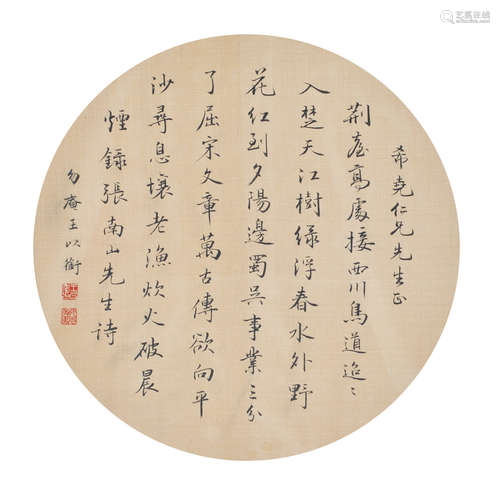 希堯仁兄先生正
荆臺高處接西川鳥道迢〻
入楚天江樹綠浮春水外野
花紅到夕陽邊蜀吳事業三分
了屈宋文章萬古傳欲向平
沙尋息壤老漁炊火破晨
煙錄張南山先生詩
勿庵王以銜